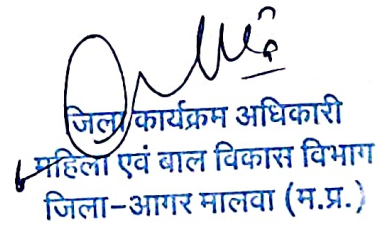 जिला कार्यक्रम अधिकारी
महिला एवं बाल विकास विभाग
जिला-आगर मालवा (म.प्र.)